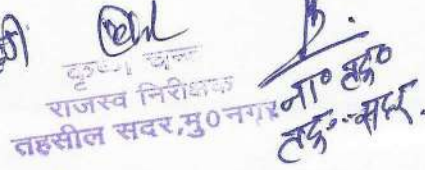 कृष्ण चन्द
राजस्व निरीक्षक
तहसील सदर,मु0नगर
ना० तह०
तह०-सदर.